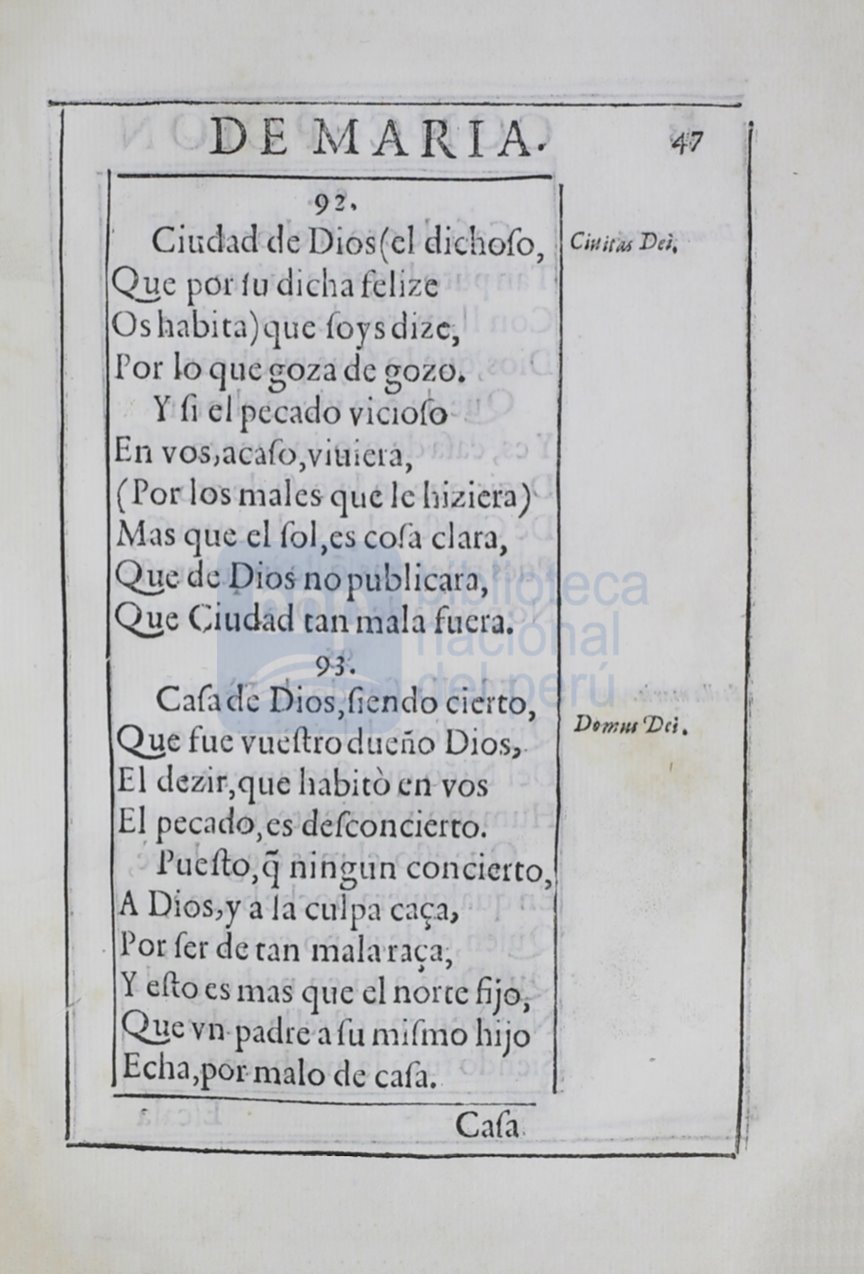 DE MARIA. 47
92.
Ciudad de Dios (el dichoſo, Ciuitas Dei.
Que por ſu dicha felize
Os habita) que ſoys dize,
Por lo que goza de gozo.
Y ſi el pecado vicioſo
En vos, acaſo, viuiera,
(Por los males que le hiziera)
Mas que el ſol, es coſa clara,
Que de Dios no publicara,
Que Ciudad tan mala fuera.
93.
Caſa de Dios, ſiendo cierto, Domus Dei.
Que fue vueſtro dueño Dios,
El dezir, que habitò en vos
El pecado, es deſconcierto.
Pueſto, q̃ ningun concierto,
A Dios, y a la culpa caça,
Por ſer de tan mala raça,
Y eſto es mas que el norte fijo,
Que vn padre a ſu miſmo hijo
Echa, por malo de caſa.
Caſa
biblioteca
nacional
del perú